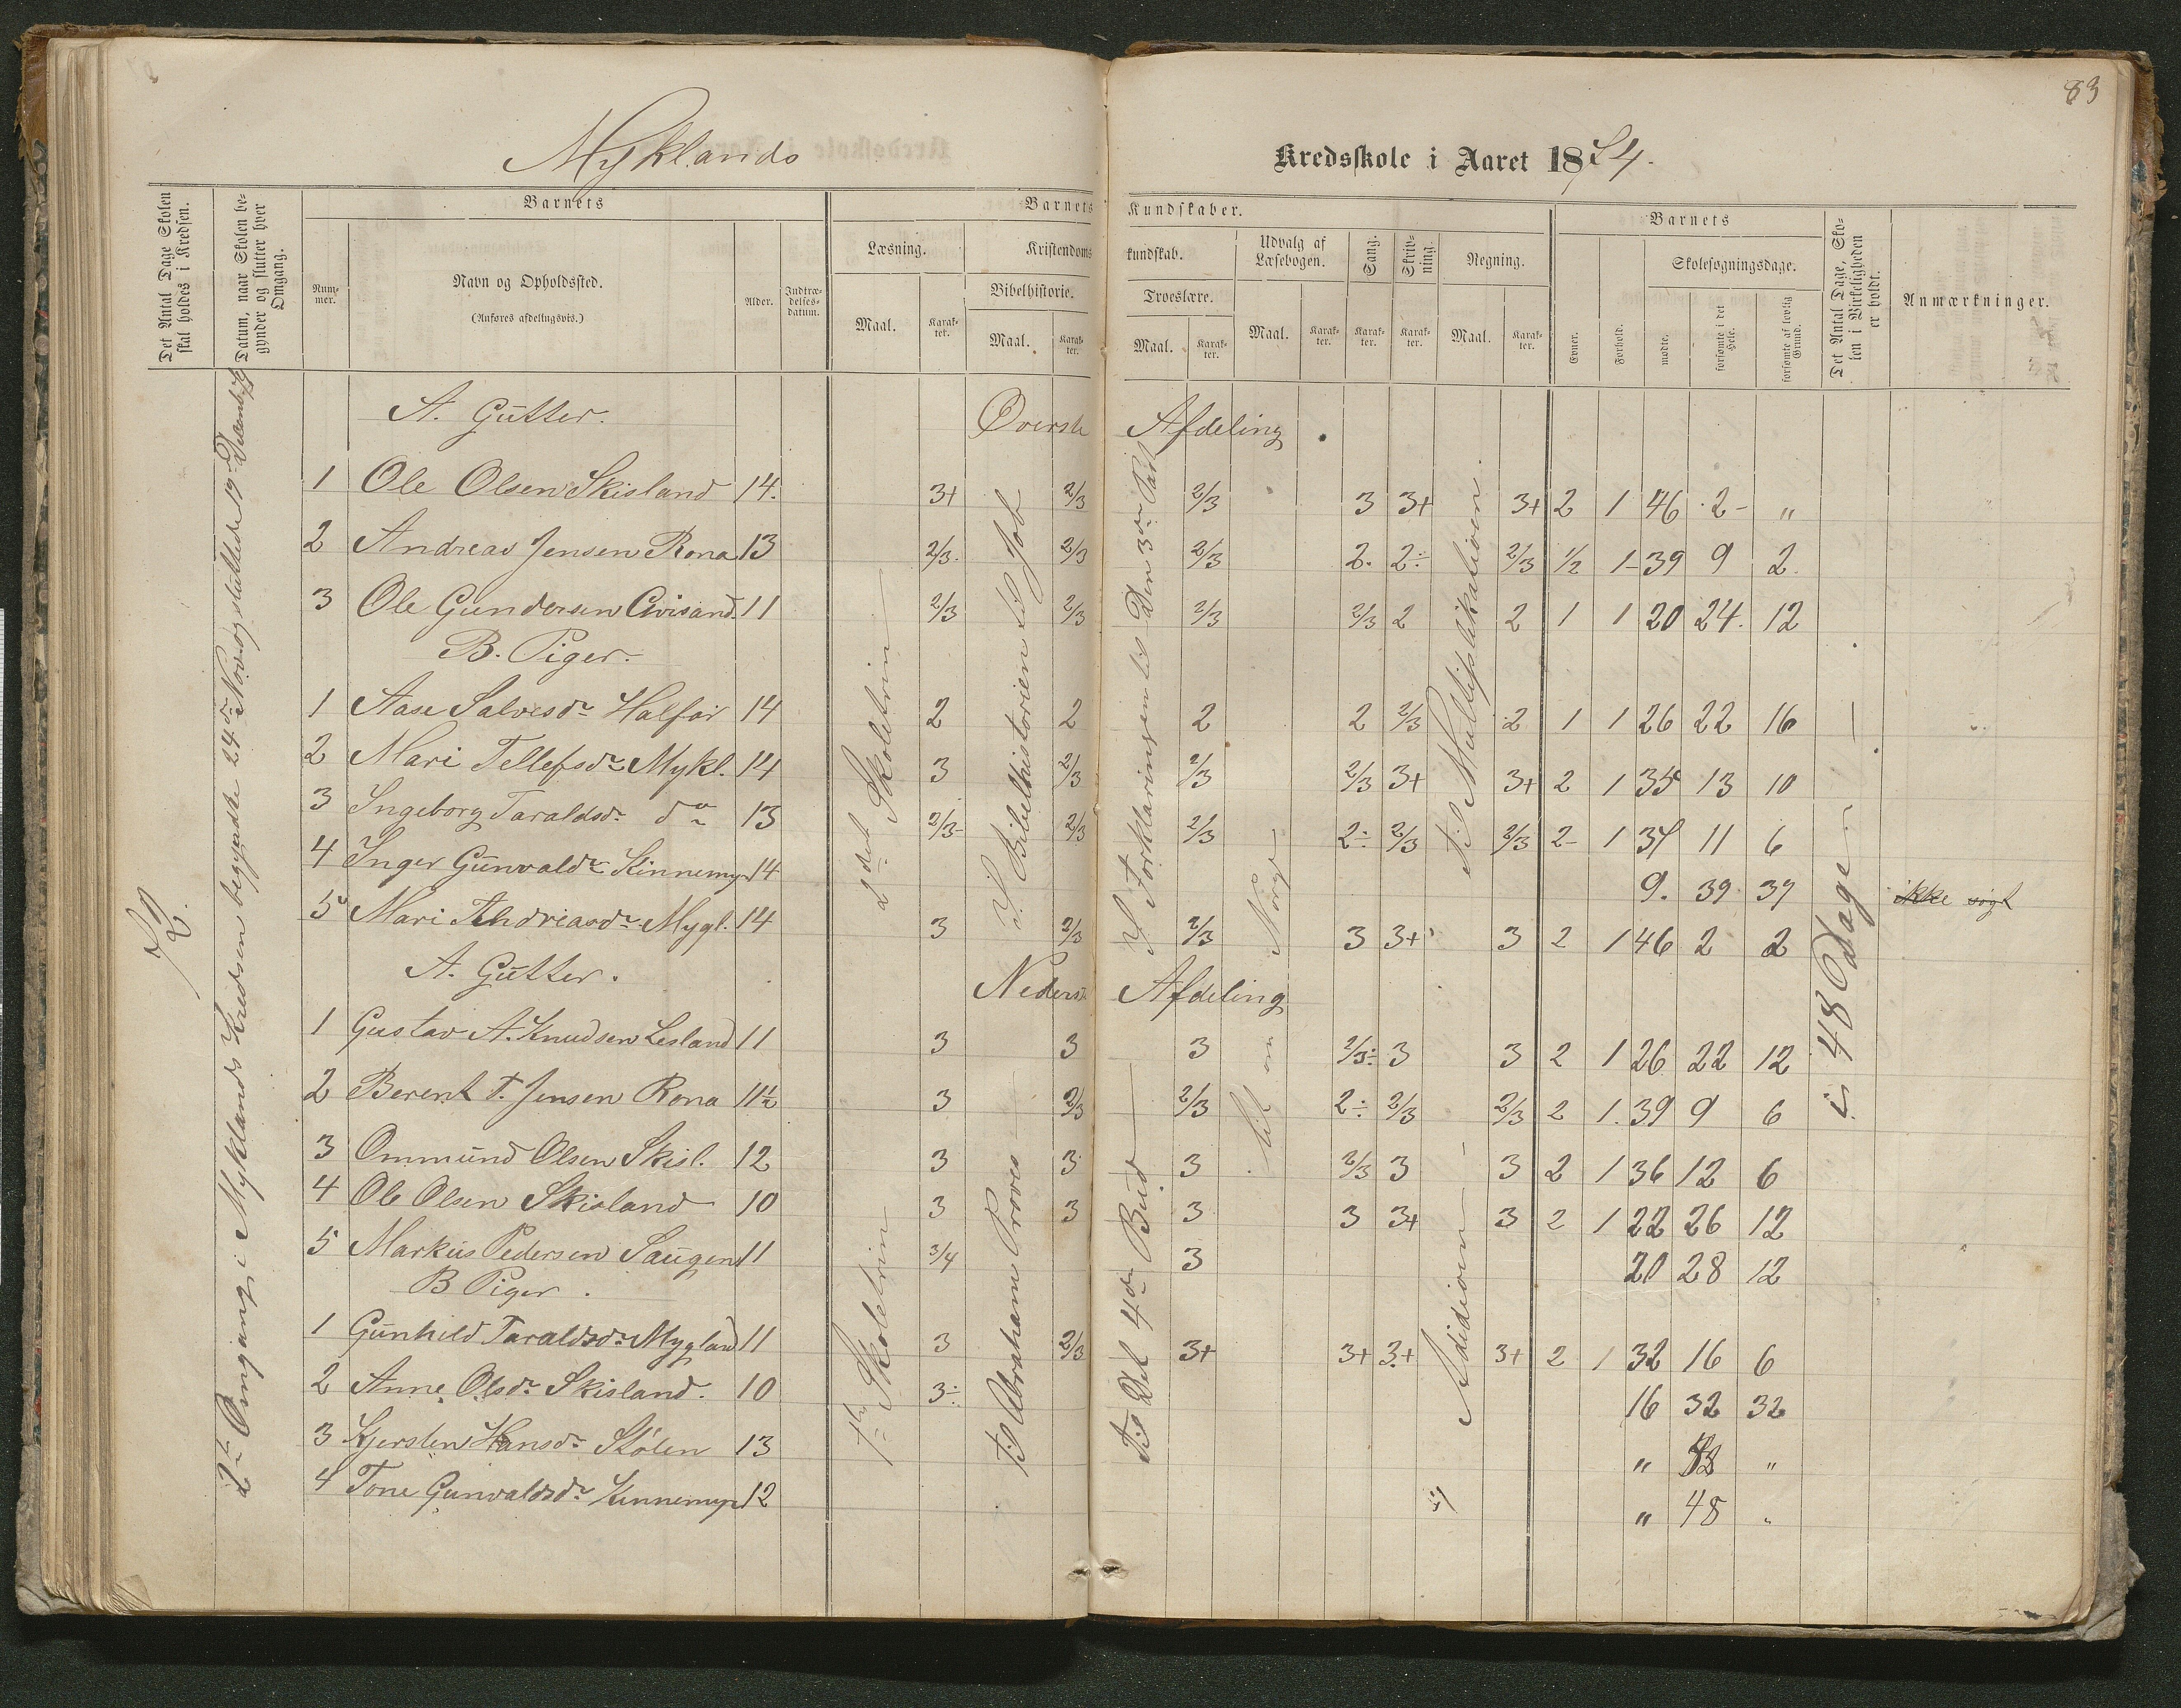 83
Myklands
Kredsskole i Aaret 1874.
Det Antal Dage Skolen skal holdes i Kredsen.
Datum, naar Skolen begynder og slutter hver Omgang.
Barnets
Nummer.
Navn og Opholdssted.
(Anføres afdelingsvis.)
Alder.
Indtrædelsesdatum.
Barnets Kundskaber.
Læsning.
Maal.
Karakter.
Kristendomskundskab.
Bibelhistorie.
Maal.
Karakter.
Troeslære.
Maal.
Karakter.
Udvalg af Læsebogen.
Maal.
Karakter.
Sang.
Karakter.
Skrivning.
Karakter.
Regning.
Maal.
Karakter.
Barnets
Evner.
Forhold.
Skolesøgningsdage.
mødte.
forsømte i det Hele.
forsømte af lovlig Grund.
Det Antal Dage, Skolen i Virkeligheden er holdt.
Anmærkninger.
72.
2den Omgang i Myklands Kredsen begyndte 24de Nov. og sluttede 19de Decemb.
2det Skoletrin
I Bibelhistorien til Job
I Forklaringen til Den 3die Part
lidt om Norge
til Multiplikationen
i 48 Dage
1ste Skoletrin
til Abrahams Prøves
til Det 4de Bud
Adidionen
A. Gutter. Øverste Afdeling.
1 Ole Olsen Skisland 14. 3+ 2/3 2/3 3 3+ 3+ 2 1 46 2 "
2 Andreas Jensen Rona 13 2/3 2/3 2/3 2. 2÷ 2/3 1/2 1 39 9 2
3 Ole Gundersen 11 2/3 2/3 2/3 2/3 2 2 1 1 20 24. 12
B. Piger.
1 Aase Salvesdr Halfar 14 2 2 2 2 2/3 2 1 1 26 22 16
2 Mari Tellefsdr Mykl. 14 3 2/3 2/3 2/3 3+ 3+ 2 1 35 13 10
3 Ingeborg Taraldsdr do 13 2/3 2/3 2/3 2÷ 2/3 2/3 2 1 37 11 6
4 Inger Gunvaldr Kinnemyr 14 9. 39 39 ikke søgt
5 Mari Andreasdr Mygl. 14 3 2/3 2/3 3 3+ 3 2 1 46 2 2
A. Gutter. Nederste Afdeling
1 Gustav A. Knudsen Lesland 11 3 3 3 2/3÷ 3 3 2 1 26 22 12
2 Berent T. Jensen Rona 11½ 3 2/3 2/3 2÷ 2/3 2/3 2 1. 39 9 6
3 Ommund Olsen Skisl. 12 3 3 3 2/3 3 3 2 1 36 12 6
4 Ole Olsen Skisland 10 3 3 3 3 3+ 3 2 1 22 26 12
5 Markus Pedersen Saugen 11 3/4 3 20 28 12
B Piger.
1 Gunhild Taraldsdr Mygland 11 3 2/3 3+ 3+ 3+ 3+ 2 1 32 16 6
2 Anne Olsdr Skisland. 10 3÷ 16 32 32
3 Kjersten Hansdr Stølen 13 " 48 "
4 Tone Gunvaldsdr Kinnemyr 12 " 48 "